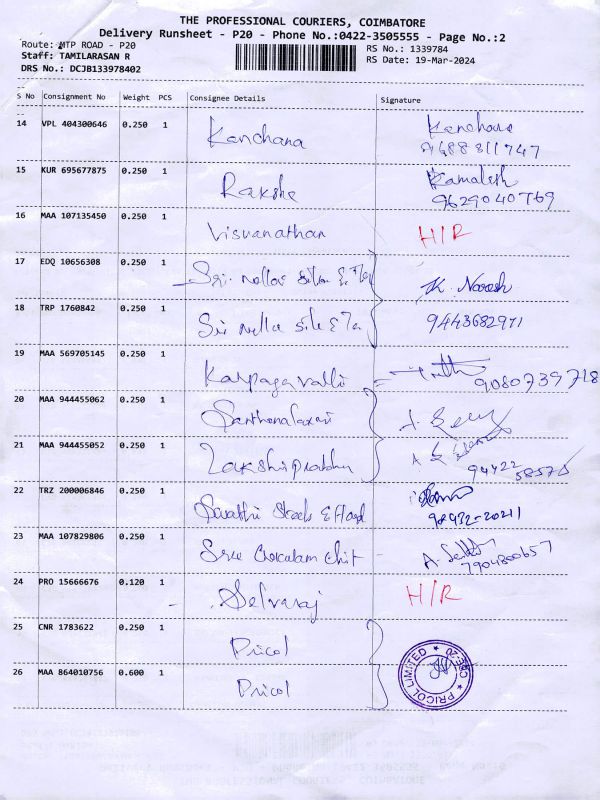 THE PROFESSIONAL COURIERS, COIMBATORE
Delivery Runsheet - P20 - Phone No.:0422-3505555 - Page No.:2
Route: MTP ROAD - P20
Staff: TAMILARASAN R
DRS No.: DCJB133978402
RS No.: 1339784
RS Date: 19-Mar-2024
S No Consignment No Weight PCS Consignee Details Signature
14 VPL 404300646 0.250 1 Kanchana Kanchana
9488811747
15 KUR 695677875 0.250 1 Raksha Kamalesh
9629040769
16 MAA 107135450 0.250 1 Visvanathan H/R
17 EDQ 10656308 0.250 1 Sri. nellai silk &
K. Naresh
18 TRP 1760842 0.250 1 Sri nella silk & 9443682971
19 MAA 569705145 0.250 1 Karpagavalli 9080739718
20 MAA 944455062 0.250 1 Santhanalaxmi
21 MAA 944455052 0.250 1 Lakshiprabha 94422 58575
22 TRZ 200006846 0.250 1 Swathi Steels & Hard
98932-20211
23 MAA 107829806 0.250 1 Sree Chit
7904800657
24 PRO 15666676 0.120 1 Selvaraj H/R
25 CNR 1783622 0.250 1 Pricol
26 MAA 864010756 0.600 1 Pricol
PRICOL LIMITED ★ CBE-20 ★